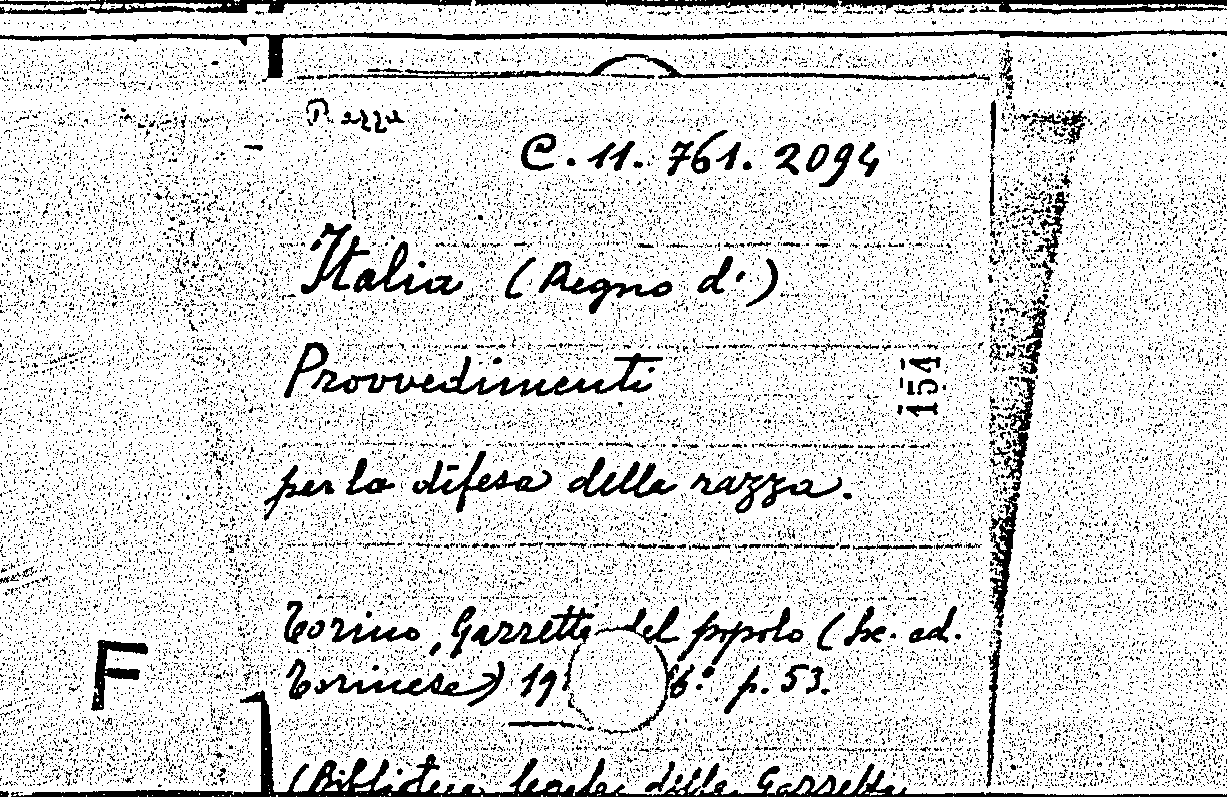 Razza
C. 11. 761. 2094
Italia (Regno d')
Provvedimenti
154
per la difesa della razza.
Torino, Gazzetta del popolo (Soc. ed.
Torinese) 19 6° p. 53.
F
(Biblioteca legale della Gazzetta